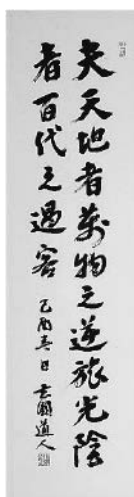 夫天地者萬物之逆旅光陰
者百代之過客 乙酉春日 道人